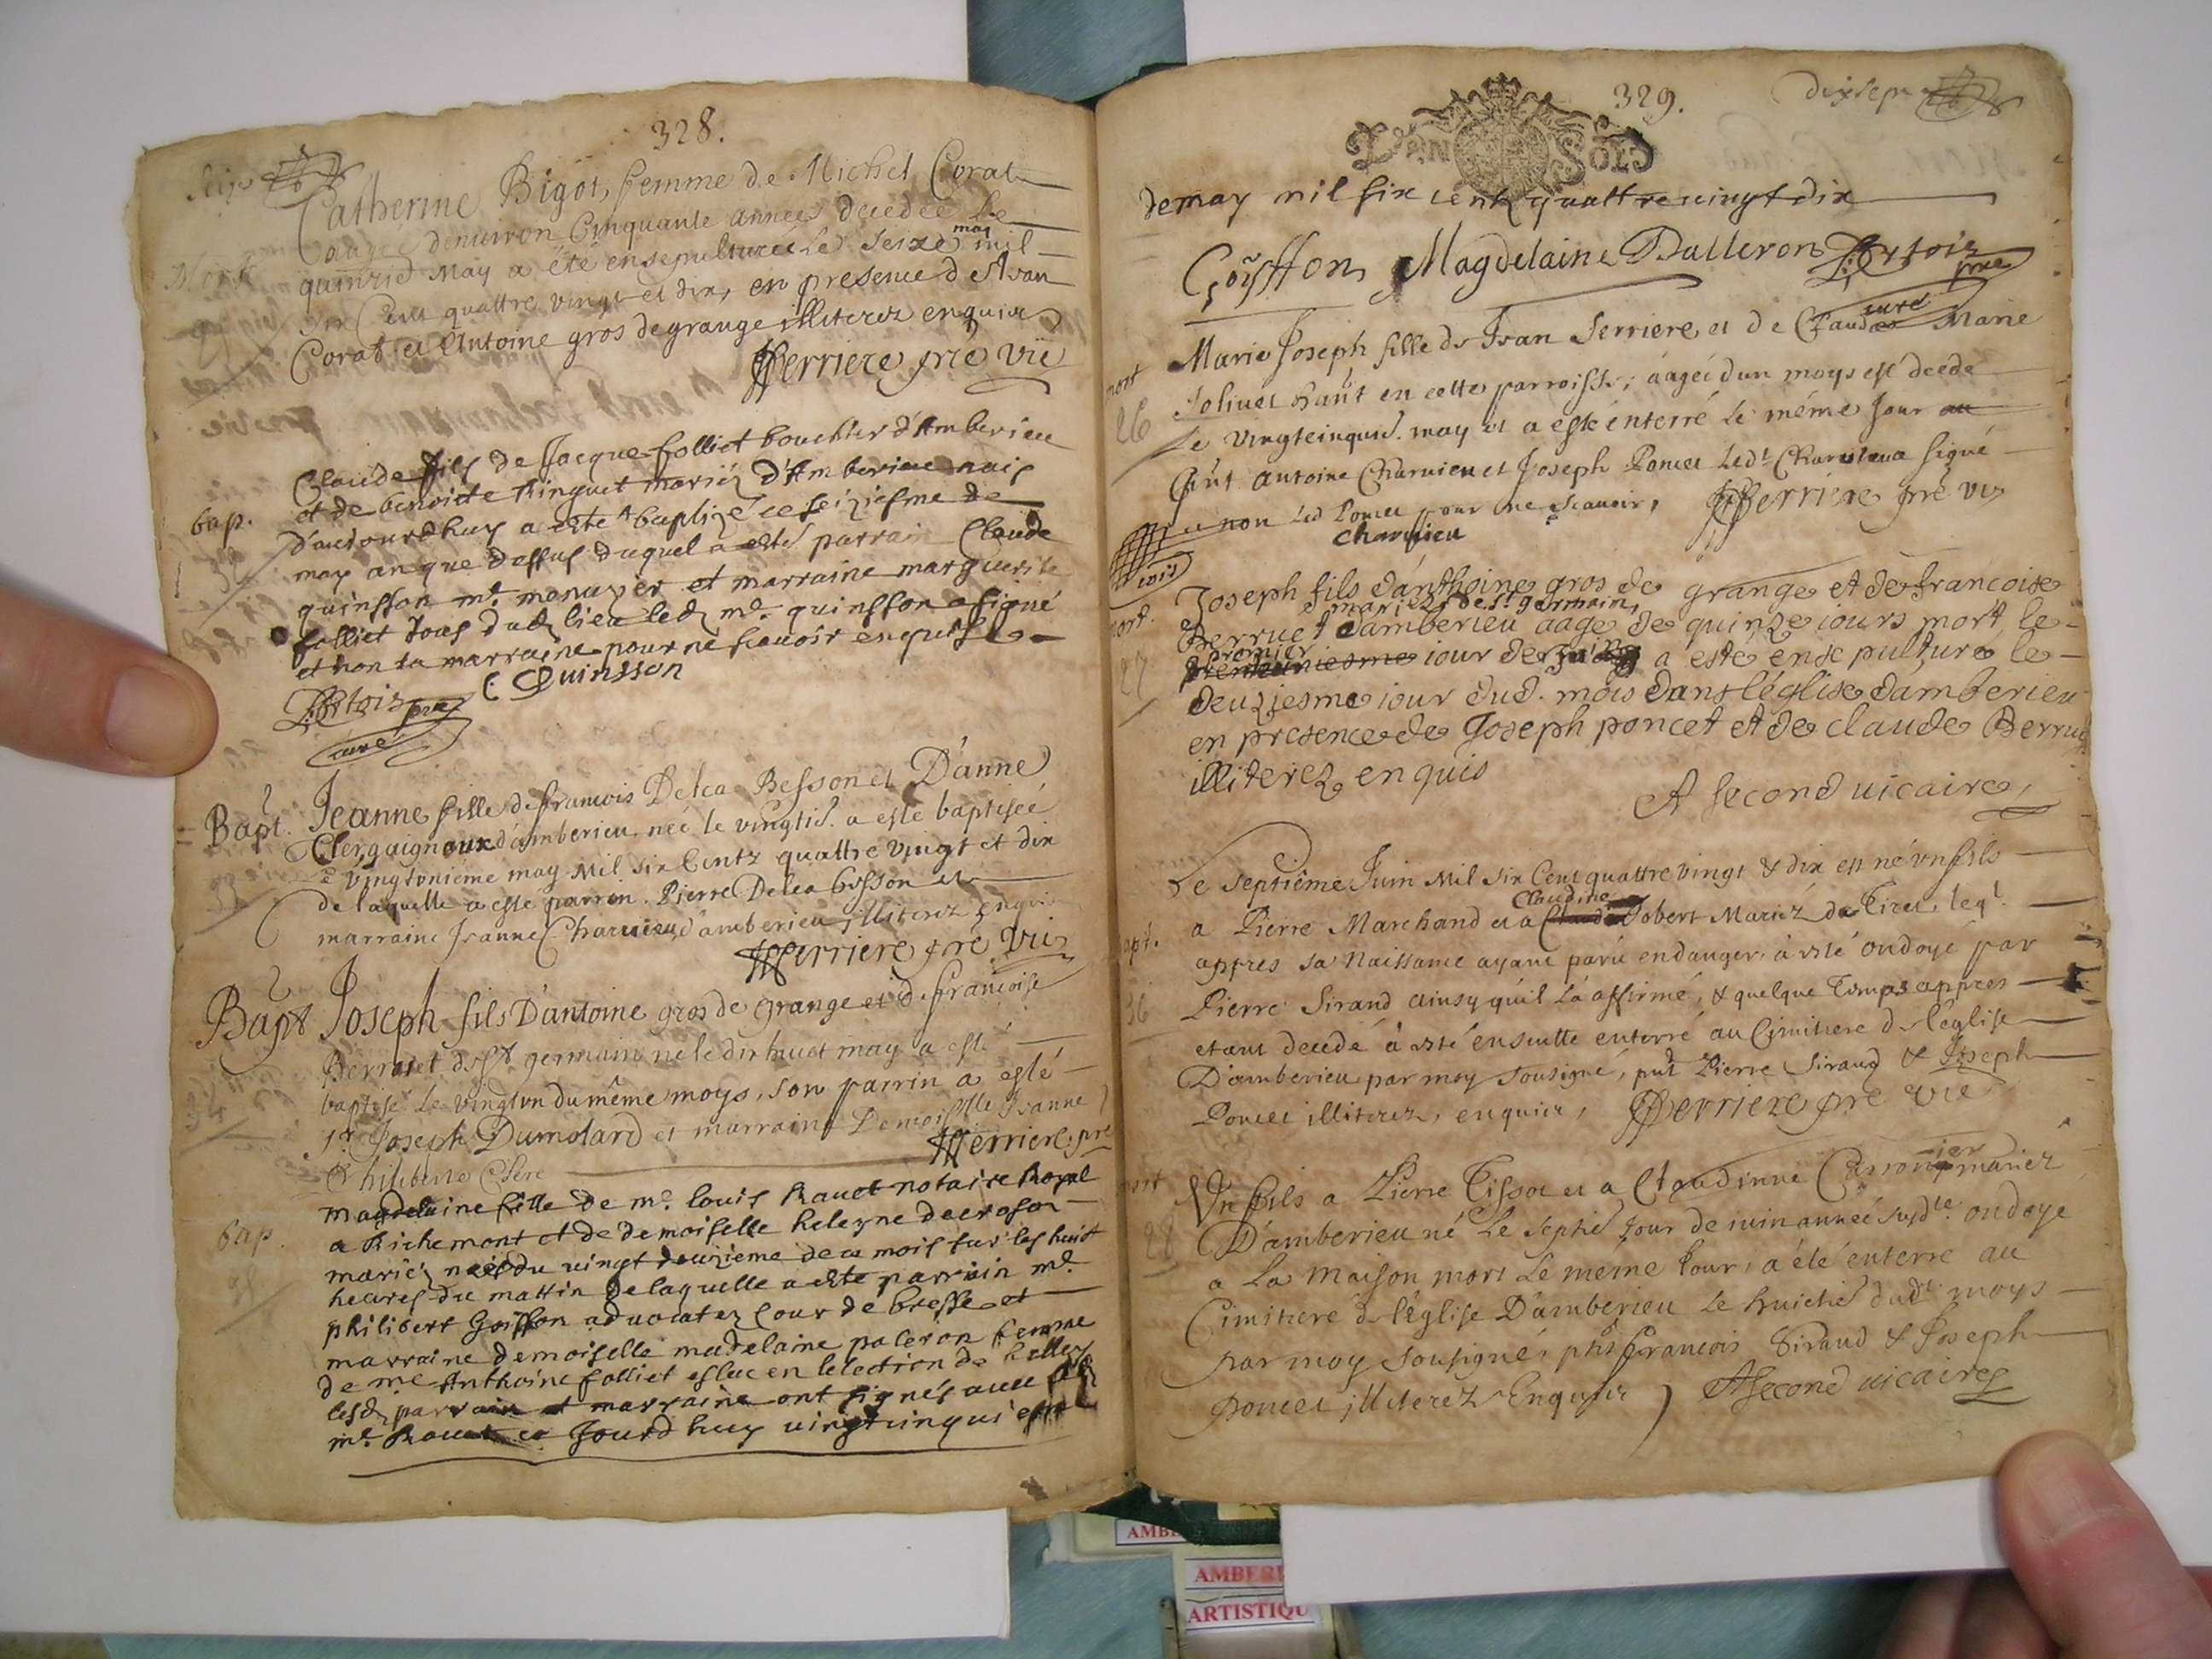 328.
Seize
Catherine Bigot, femme de Michel Corat
aagée denviron Cinquante années decedée Le
Mort
quinzie May a été ensepulturée Le seize may mil
six Cent quattre vingt et dix, en presence de Jean
Corat et Antoine gros de grange illiterez enquis
Ferriere pre vic
Claude fils de Jacque folliet bouchier d'Amberieu
et de benoicte Ringuet mariéz d'Amberieu nais
bap.
d'aujourdhuy a esté baptizé ce seiziesme de
may an que dessus duquel a esté parrain Claude
quinsson me menuzier et marraine marguerite
folliet tous dud lieu led me quinsson a signé
et non la marraine pour ne scavoir enquise
C Quinsson
pre
curé
Bapt. Jeanne fille de francois De lea Besson et D'anne
Clerguignoux d'amberieu née le vingtie. a esté baptiseé
e vingtvnieme may Mil six Centz quattre vingt et dix
de laquelle a esté parrin Pierre De lea besson et
marraine Jeanne Charvieu d'amberieu illiterez enquis
Ferriere pre Vic
Bapt Joseph fils D'antoine gros de grange et de francoise
Berruet de St germain né le dix huict may a esté
baptisé Le vingtvn du même moys, son parrin a esté
Sr Joseph Dumolard et marraine Demoiselle Jeanne
Philiberte Chere
Ferriere pre
bap.
magdelaine fille de me louis Rauet notaire Royal
a Richemont et de demoiselle heleyne decroson
mariéz née du vingt deuxieme de ce mois sur les huict
heures du mattin de laquelle a esté parrain me
philibert Goiffon aduocat ez cour de bresse et
marraine demoiselle madelaine paleron femme
de me Anthoine folliet esleu en lelection de belley
lesd parrain et marraine ont signés auec led
me Rauet ce Jourdhuy vingtcinquiesme
329.
dixsept
DEN SOLS
de may mil six cent quattre vingt dix
Goÿffon Magdelaine Dalleron
pre
curé
mort
26
Marie Joseph fille de Jean Serriere et de Claudae Marie
Joliuet hañt en cette parroisse, aageé dun moys est decedé
Le vingtcinquie. may et a esté enterré le méme Jour au
pñt Antoine Charuieu et Joseph Poncet Ledt Charuieu signé
et non Led Poncet pour ne scauoir, Ferriere pre vic
charuieu
mort.
27
Joseph fils d'anthoine gros de grange et de francoise
mariez de st germain,
Berruet d'amberieu aage de quinze iours mort le
premier
iour de Juin a esté ensepulturé le
deuziesme iour dud. mois dans léglise d'amberieu
en presence de Joseph poncet et de claude Berruet
illiterez enquis
A second uicaire
Le septiême Juin Mil six Cent quattre vingt & dix est né vn fils
Claudine
a Pierre Marchand et a Jobert Mariéz de Tiret leql.
bapt.
appres sa Naissance ayant parû en danger, à esté ondoyé par
Pierre Sirand ainsy qu'il l'a affirmé, & quelque temps appres
36
etant decedé à esté ensuitte enterré au Cimitiere de l'eglise
D'amberieu par moy sousigné, pñt Pierre Siraud & Joseph
Poncet illiterez, enquis, Ferriere pre vic
mort
28
Vn fils a Pierre Tissot et a Claudinne mariéz
D'amberieu né le septie Jour de iuin anneé susdte ondoyé
a La maison mort Le méme Jour, a été enterré au
Cimitiere de l'église D'amberieu le huictie dudt moys
par moy sousigné, pñt francois Siraud & Joseph
poncet illiterez Enquis A second uicaire
AMBE
AMBERI
ARTISTIQU